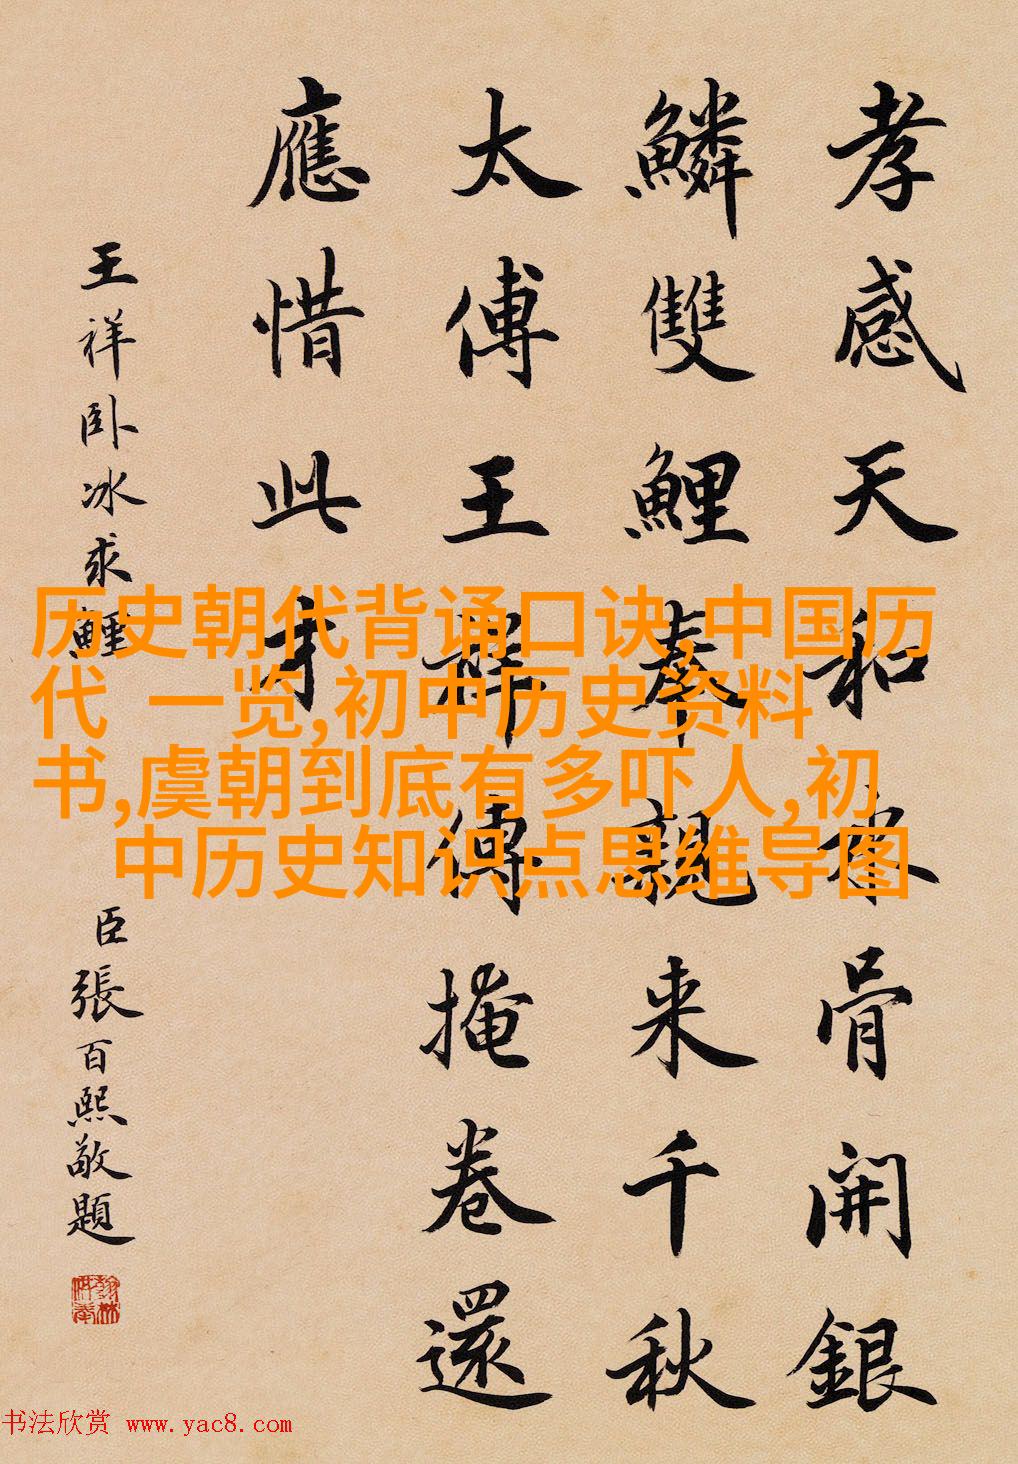 孝感天和氷骨開銀
鱗雙鯉奉親来千秋
太傅王祥傳掩卷還
應惜此才
王祥卧冰求鯉
臣張百熙敬題
历史朝代背诵口诀,中国历
代 一览,初中历史资料
书,虞朝到底有多吓人,初
中历史知识点思维导图
书法欣赏 www.yac8.com